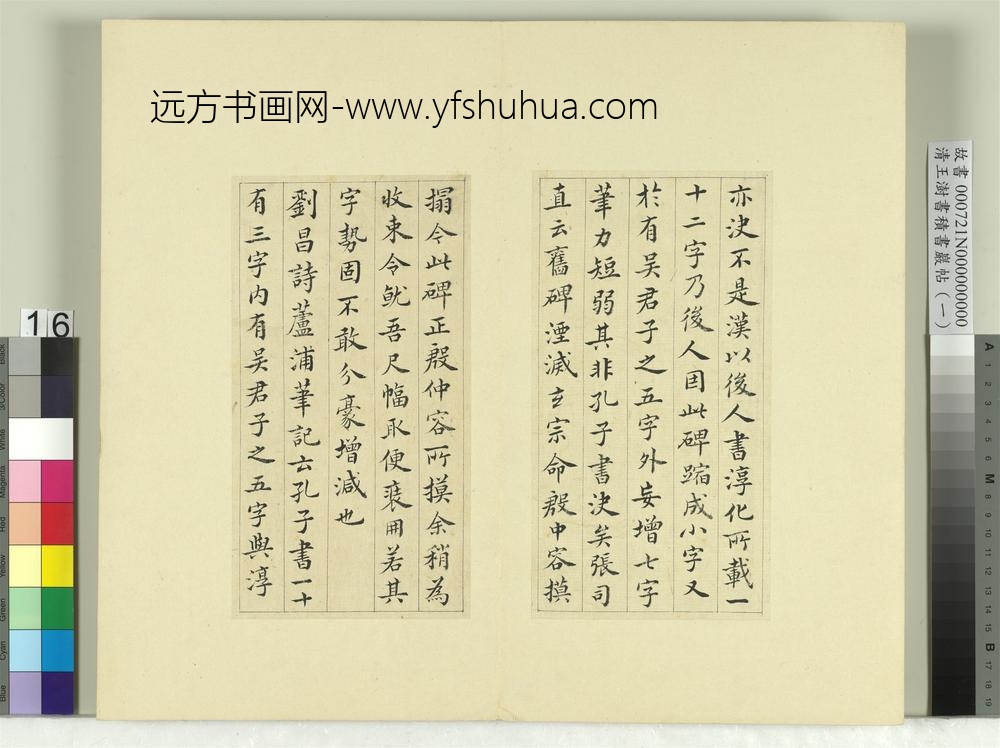 远方书画网-www.yfshuhua.com
亦決不是漢以後人書淳化所載一
十二字乃後人因此碑蹜成小字又
於有吴君子之五字外妄增七字
筆力短弱其非孔子書決矣張司
直云舊碑湮滅玄宗命殷中容摸
搨今此碑正殷仲容所摸余稍為
收束令就吾尺幅取便裝冊若其
字勢固不敢分豪增減也
劉昌詩蘆浦筆記云孔子書一十
有三字内有吴君子之五字與淳
故書 000721N000000000
清王澍書積書巖帖（一）
16
Black
3/Color
White
Magenta
Red
Yellow
Green
Cyan
Blue
A
1
2
3
4
5
6
M
8
9
10
11
12
13
14
15
B
17
18
19